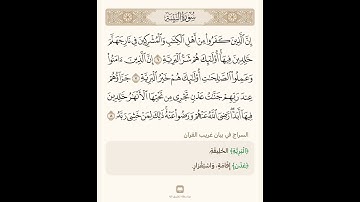 سُورَةُ البَيِّنَةِ
إِنَّ الَّذِينَ كَفَرُوا مِنْ أَهْلِ الْكِتَابِ وَالْمُشْرِكِينَ فِي نَارِ جَهَنَّمَ
خَالِدِينَ فِيهَا أُولَٰئِكَ هُمْ شَرُّ الْبَرِيَّةِ ٦ إِنَّ الَّذِينَ ءَامَنُوا
وَعَمِلُوا الصَّالِحَاتِ أُولَٰئِكَ هُمْ خَيْرُ الْبَرِيَّةِ ٧ جَزَاؤُهُمْ
عِندَ رَبِّهِمْ جَنَّاتُ عَدْنٍ تَجْرِي مِن تَحْتِهَا الْأَنْهَارُ خَالِدِينَ
فِيهَا أَبَدًا رَّضِيَ اللَّهُ عَنْهُمْ وَرَضُوا عَنْهُ ذَٰلِكَ لِمَنْ خَشِيَ رَبَّهُ ٨
السراج في بيان غريب القرآن
﴿الْبَرِيَّةِ﴾ الخَلِيقَةِ.
﴿عَدْنٍ﴾ إِقَامَةٍ، وَاسْتِقْرَارٍ.